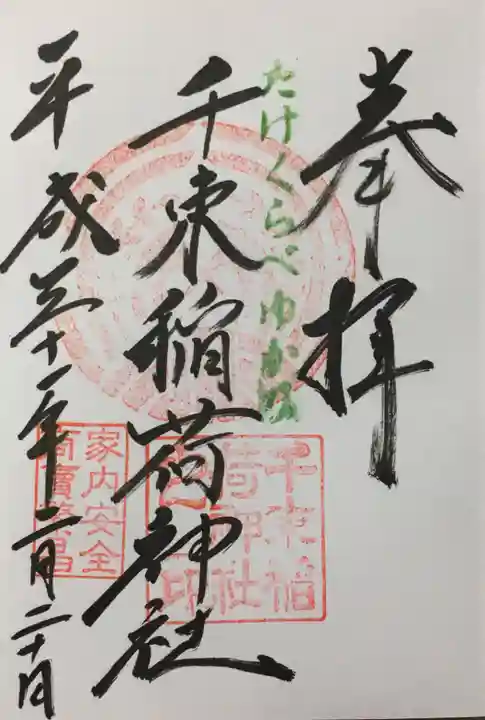 奉拝
たけくらべゆかりの
千束稲荷神社
平成三十一年二月二十日
千束稲荷神社
家内安全
商賣繁昌